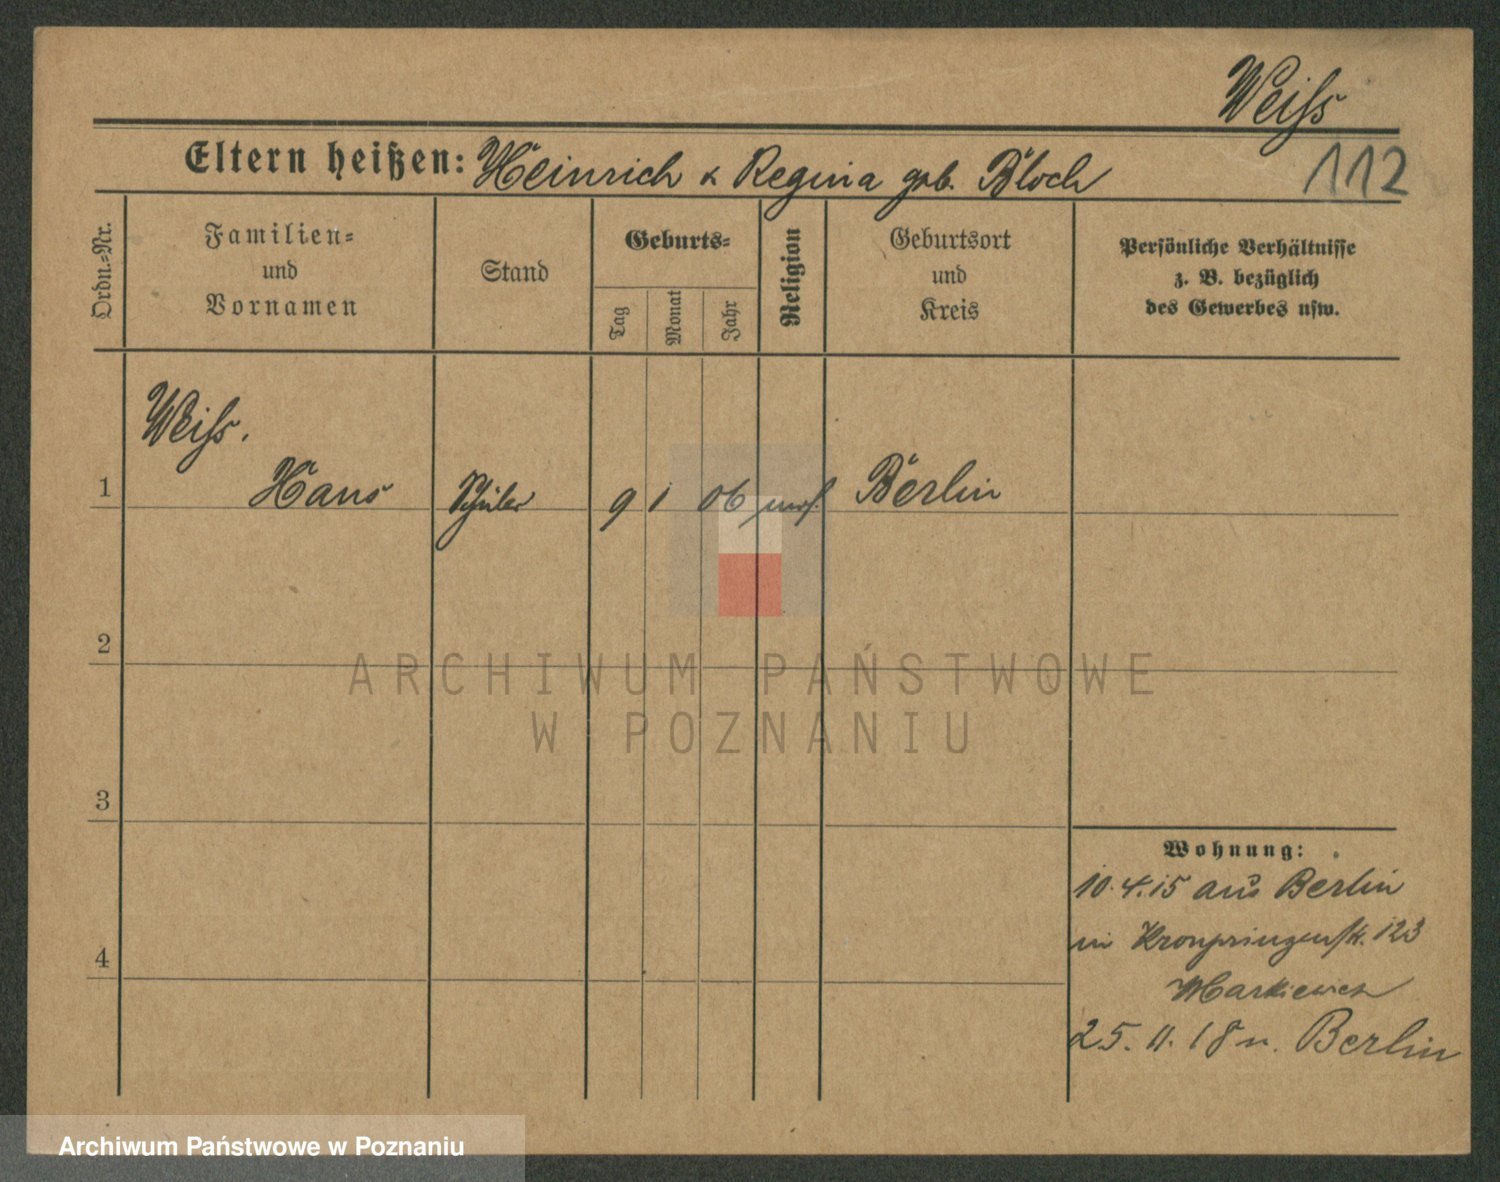 Weiss
112
Eltern heißen: Heinrich & Regina geb. Bloch
Ordn.-Nr.
Familien-
und
Vornamen
Stand
Geburts-
Tag
Monat
Jahr
Religion
Geburtsort
und
Kreis
Persönliche Verhältnisse
z. B. bezüglich
des Gewerbes usw.
Weiss.
1 Hans Schüler 9 1 06 mos. Berlin
2
3
4
Wohnung:
10.4.15 aus Berlin
in Kronprinzenstr. 123
Markiewicz
25.11.18 n. Berlin
ARCHIWUM PAŃSTWOWE
W POZNANIU
Archiwum Państwowe w Poznaniu